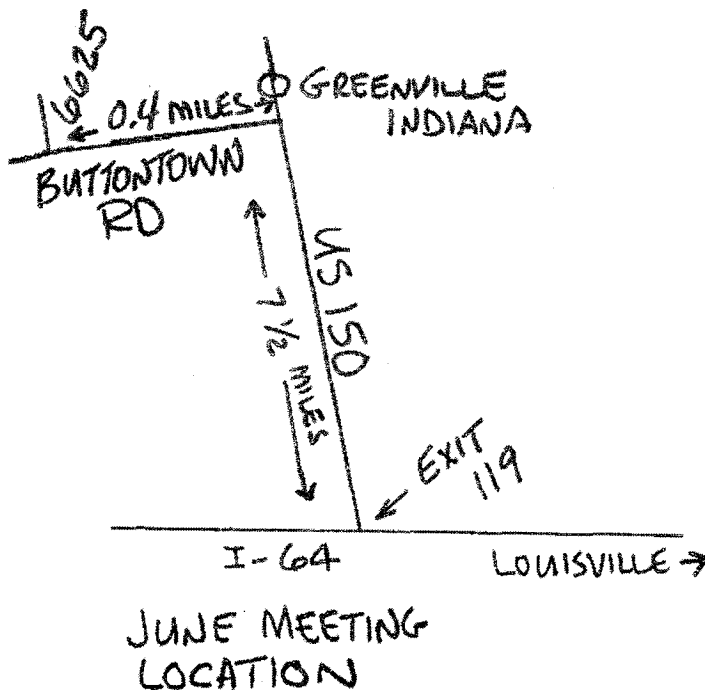 6625
0.4 MILES
GREENVILLE
INDIANA
BUTTONTOWN
RD
US 150
7 1/2 MILES
EXIT
119
I-64
LOUISVILLE →
JUNE MEETING
LOCATION